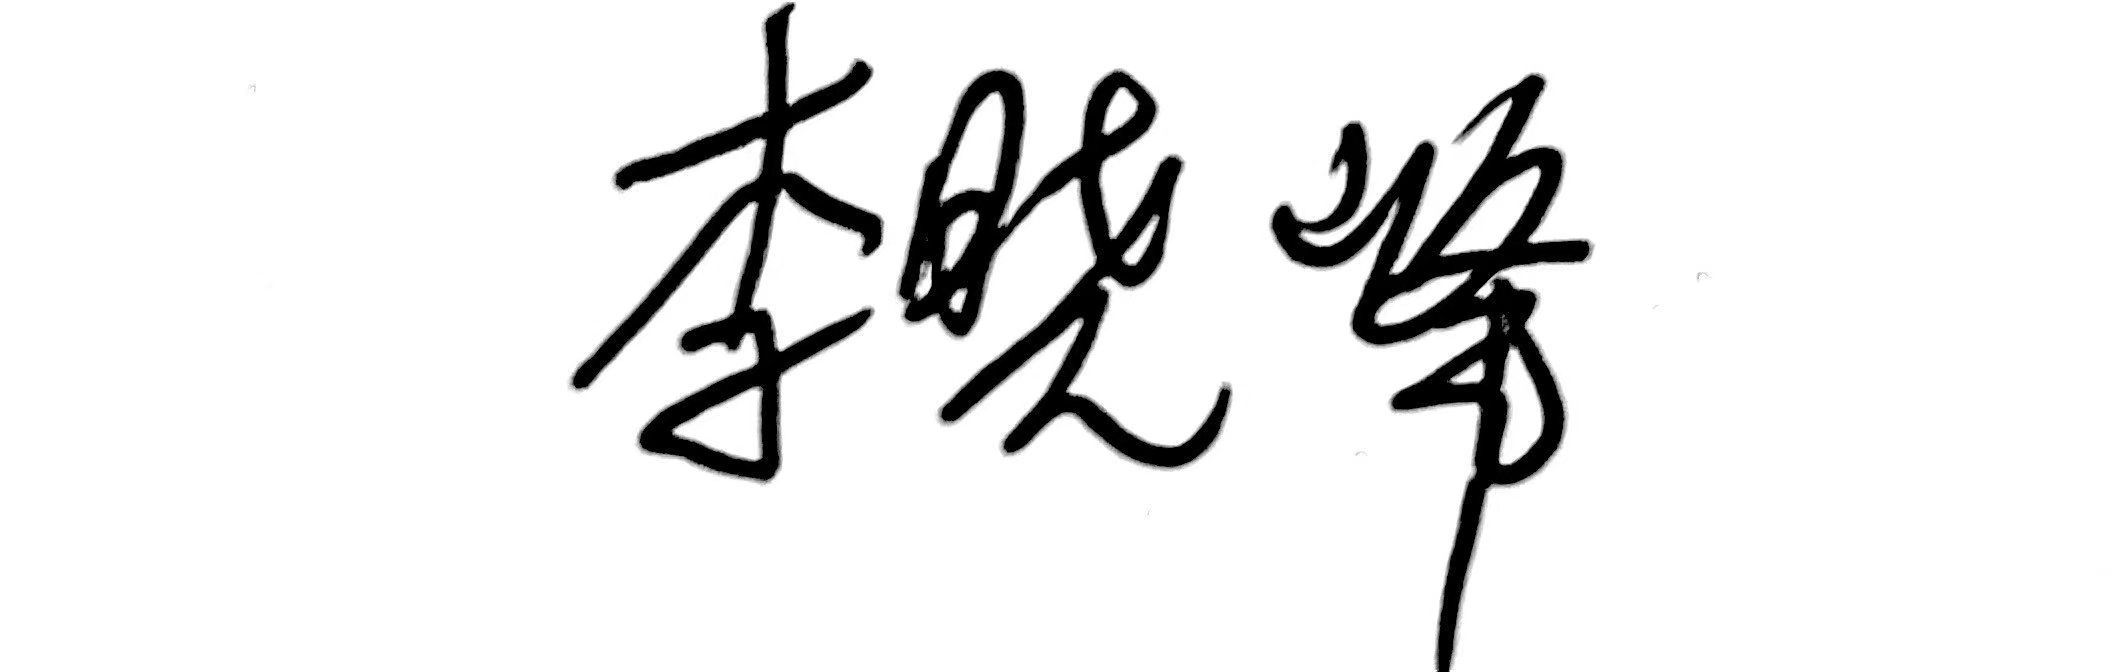 李晓峰